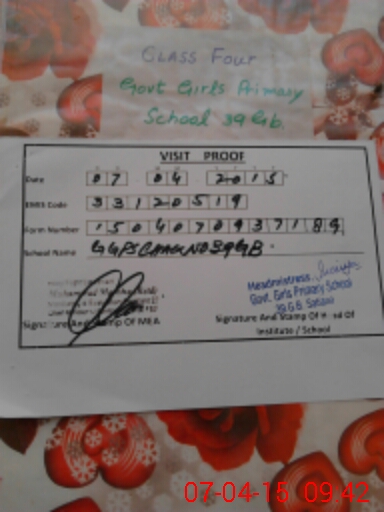 CLASS Four
Govt Girls Primary
School 39 Gb.
VISIT PROOF
Date 07 04 2015
EMIS Code 33120519
Form Number 150407093718
School Name GGPS CHAK NO 39 GB
Signature And Stamp Of MEA
Headmistress
Govt. Girls Primary School
39 G.B. Satiana
Signature And Stamp Of Head Of
Institute / School
07-04-15 09:42